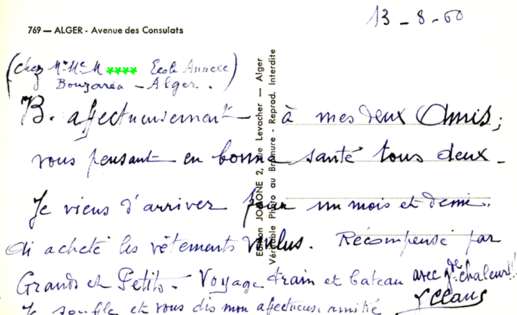 13-8-60
769 — ALGER - Avenue des Consulats
(chez Mr Me M **** Ecole Annexe)
Bouzarea - Alger.
B. afectueusement - à mes deux Amis,
vous pensant en bonne santé tous deux -
Je viens d'arriver pour un mois et demi.
Ai acheté les vêtements voulus. Récompensé par
Grands et Petits - Voyage train et bateau avec gde chaleur!!
Je souffle et vous dis mon affectueuse amitié
Edition JOMONE 2, Levacher — Alger
Véritable Photo au Bromure - Reprod. Interdite